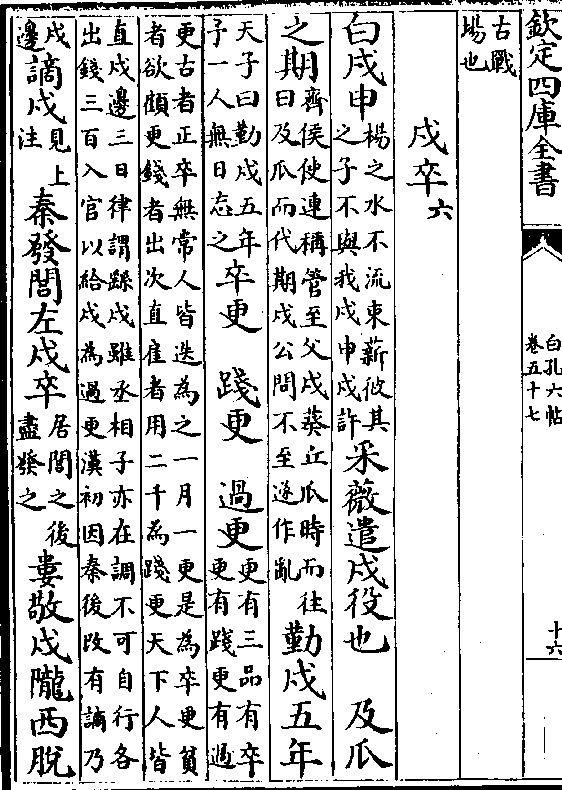 欽定四庫全書
白孔六帖
卷五十七
十六
古戰
塲也
戍卒六
白戍申
楊之水不流東薪彼其
之子不與我戍申戍許
采薇遣戍役也　及瓜
之期
齊侯使連稱管至父戍葵丘瓜時而往
曰及瓜而代期戍公問不至遂作亂
勤戍五年
天子曰勤戍五年
子一人無日忘之
卒更　踐更　過更
更有三品有卒
更有踐更有過
更古者正卒無常人皆迭為之一月一更是為卒更貧
者欲顧更錢者出次直雇者用二千為踐更天下人皆
直戍邊三日律謂繇戍雖丞相子亦在調不可自行各
出錢三百入官以給戍為過更漢初因秦後改有謫乃
戍
邊
謫戍
見上
注
秦發閭左戍卒
居閭之後
盡發之
婁敬戍隴西脫